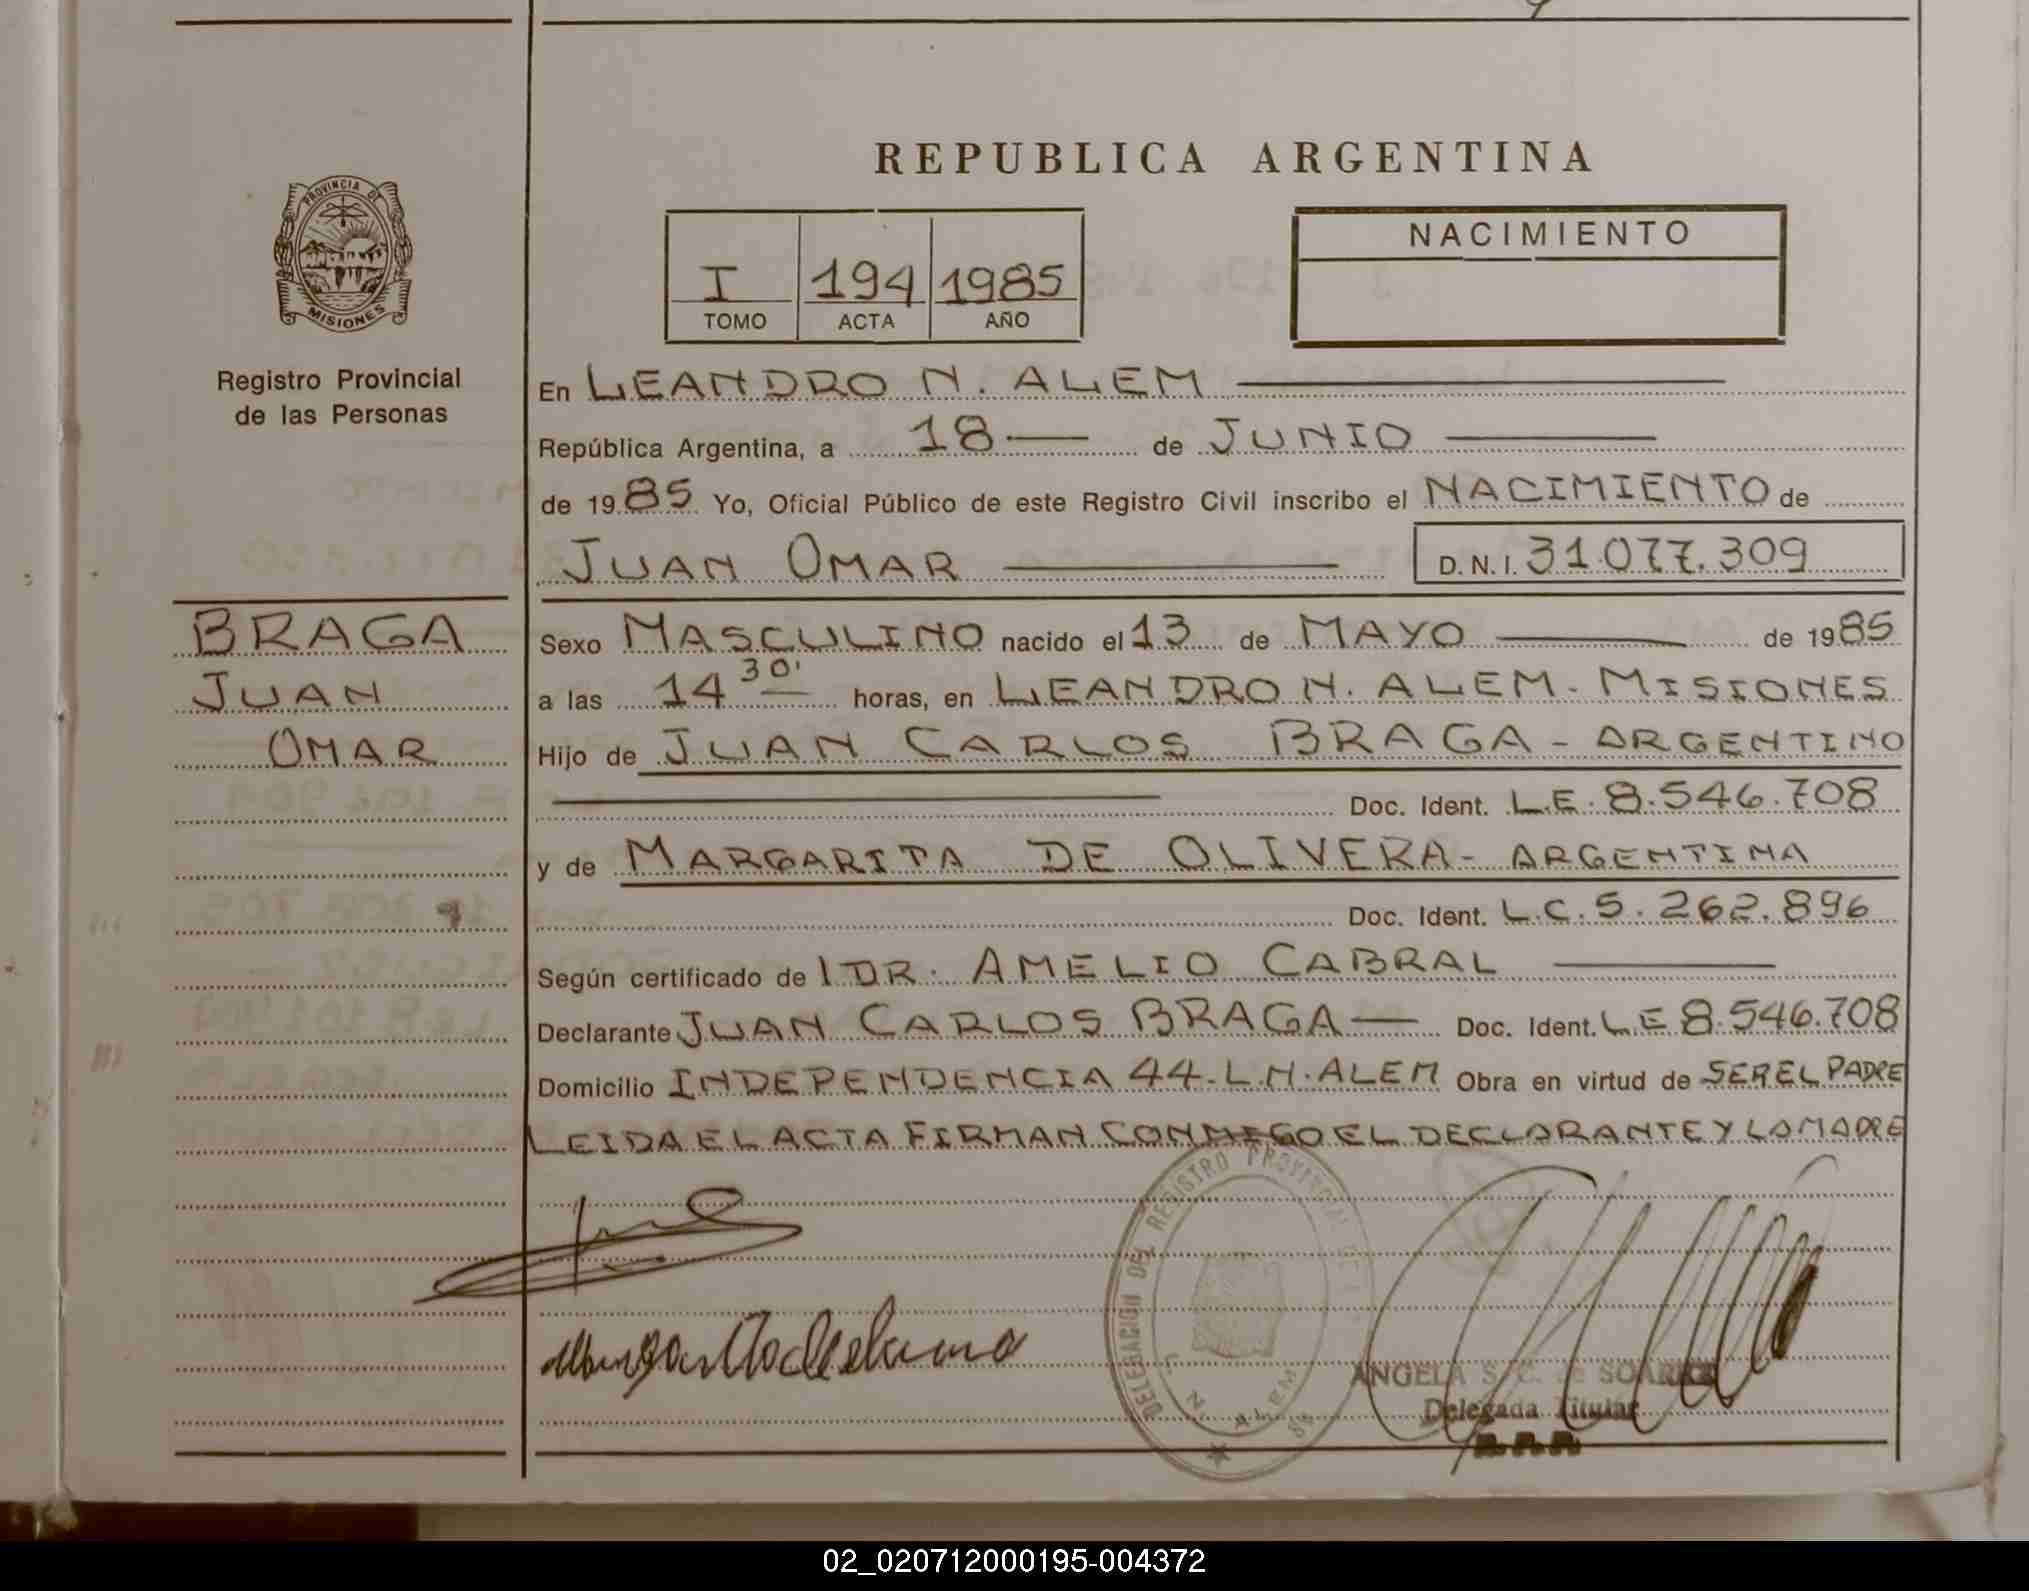 PROVINCIA DE
MISIONES
Registro Provincial
de las Personas
REPUBLICA ARGENTINA
I 194 1985
TOMO ACTA AÑO
NACIMIENTO
En LEANDRO N. ALEM
República Argentina, a 18 de JUNIO
de 1985 Yo, Oficial Público de este Registro Civil inscribo el NACIMIENTO de
JUAN OMAR D.N.I. 31.077.309
BRAGA
JUAN
OMAR
Sexo MASCULINO nacido el 13 de MAYO de 1985
a las 14 30' horas, en LEANDRO N. ALEM - MISIONES
Hijo de JUAN CARLOS BRAGA - ARGENTINO
Doc. Ident. L.E. 8.546.708
y de MARGARITA DE OLIVERA - ARGENTINA
Doc. Ident. L.C. 5.262.896
Según certificado de l DR. AMELIO CABRAL
Declarante JUAN CARLOS BRAGA Doc. Ident. L.E 8.546.708
Domicilio INDEPENDENCIA 44. L.N. ALEM Obra en virtud de SER EL PADRE
LEIDA EL ACTA FIRMAN CONMIGO EL DECLARANTE Y LA MADRE
DELEGACION DEL REGISTRO PROVINCIAL DE
N. ALEM
ANGELA S. C. de SOAREZ
Delegada Titular
02_020712000195-004372